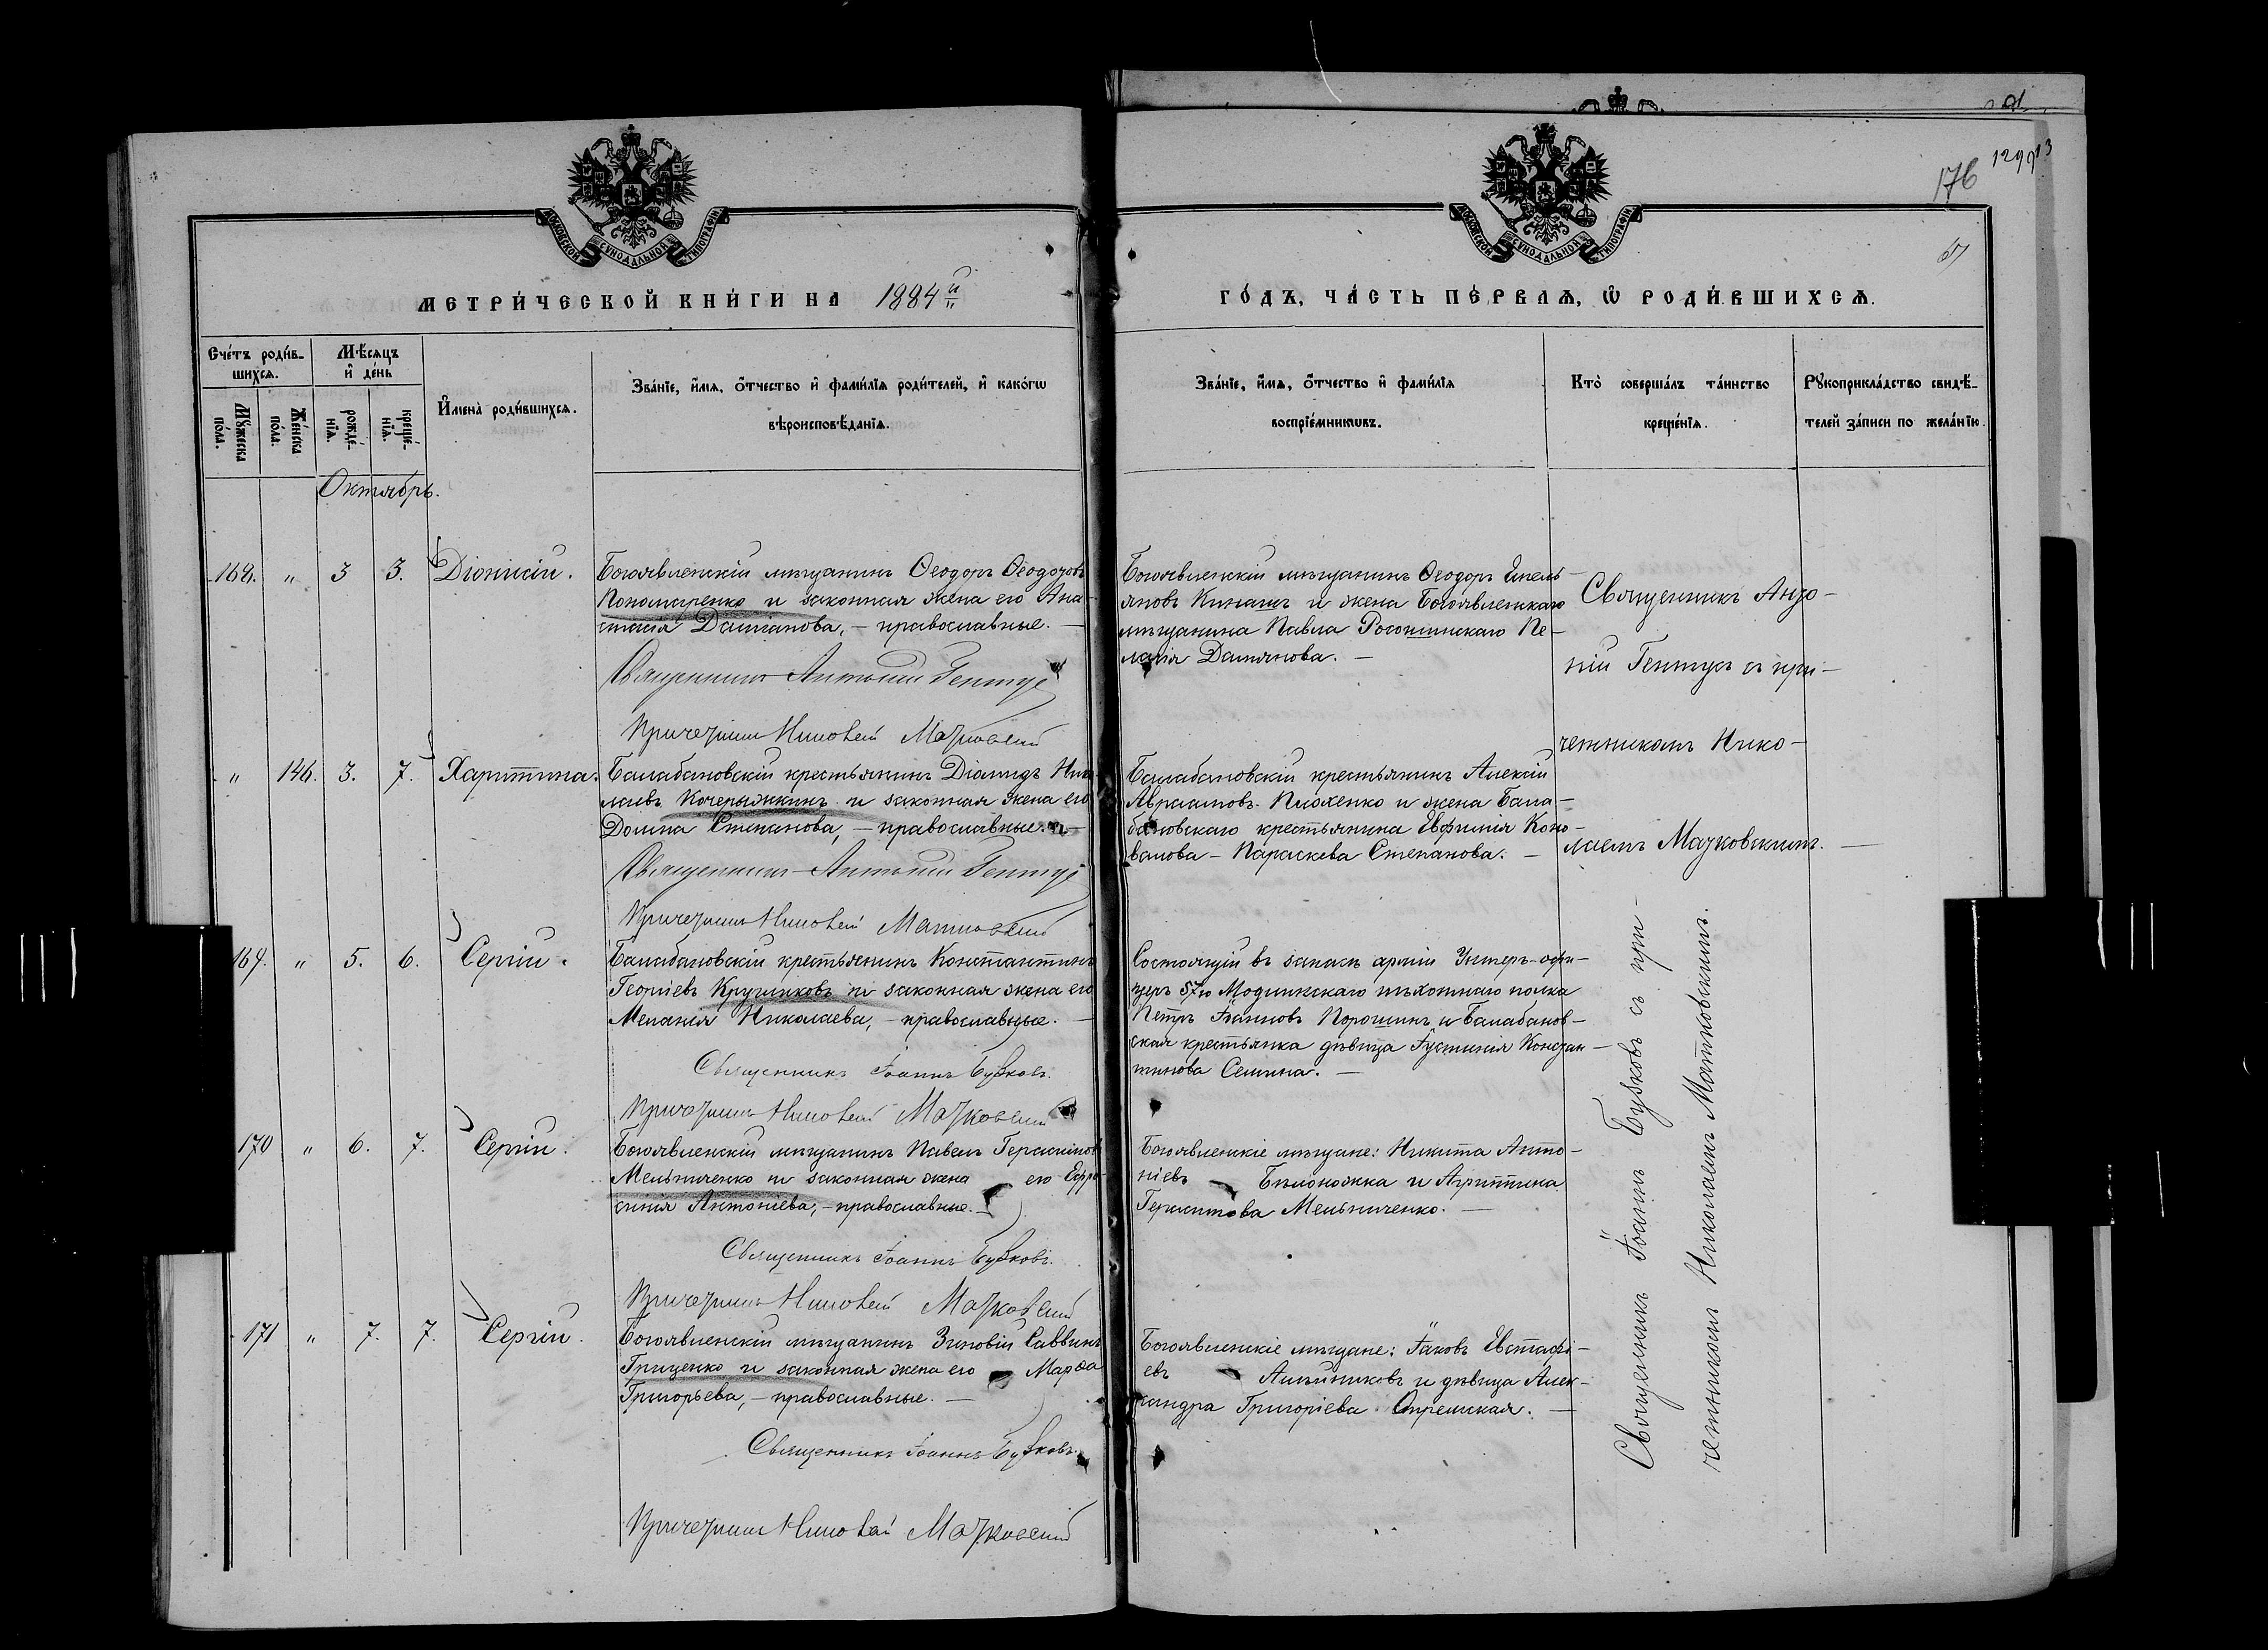 91
176
12993
МОСКОВСКОЙ СѴНОДАЛЬНОЙ ТИПОГРАФІИ
МОСКОВСКОЙ СѴНОДАЛЬНОЙ ТИПОГРАФІИ
МЕТРИ́ЧЕСКОЙ КНИ́ГИ НА 1884й
ГО́ДЪ, ЧА́СТЬ ПЕ́РВАѦ, Ѡ҆ РОДИ́ВШИХСѦ.
Сче́тъ роди́в-
шихсѧ.
Мѣ́сѧцъ
и҆ де́нь
Мꙋ́жеска
по́ла.
Же́нска
по́ла.
рожде́-
нїѧ.
креще́-
нїѧ.
И҆мена̀ роди́вшихсѧ.
Зва́нїе, и҆́мѧ, ѻ҆́тчество и҆ фами́лїѧ роди́телей, и҆ како́гѡ
вѣроисповѣ́данїѧ.
Зва́нїе, и҆́мѧ, ѻ҆́тчество и҆ фами́лїѧ
воспрїе́мникѡвъ.
Кто̀ соверша́лъ та́инство
креще́нїѧ.
Рꙋкоприкла́дство свидѣ́-
телей за́писи по жела́нїю.
Октябрь.
168. " 3 3. Діонисій.
Богоявленскій мѣщанинъ Ѳеодоръ Ѳеодоровъ
Пономаренко и законная жена его Ана-
стасія Даміанова, - православные. -
Священникъ Антоній Гентуе
Причетникъ Николай Матковскій
Богоявленскій мѣщанинъ Ѳеодоръ Емель-
яновъ Кинашъ и жена Богоявленскаго
мѣщанина Павла Рогошинскаго Пе-
лагія Дамянова. -
Священникъ Анто-
ній Гентуе съ при-
четникомъ Нико-
лаемъ Матковскимъ. -
" 146. 3. 7. Харитина.
Балабановскій крестьянинъ Діомидъ Нико-
лаевъ Кочерыжкинъ и законная жена его
Домна Степанова, - православные. -
Священникъ Антоній Гентуе
Причетникъ Николай Матковскій
Балабановскій крестьянинъ Алексій
Авраамовъ Плохенко и жена Бала-
бановскаго крестьянина Евфимія Коно-
валова - Параскева Степанова. -
169. " 5. 6. Сергій.
Балабановскій крестьянинъ Константинъ
Георгіевъ Кругликовъ и законная жена его
Меланія Николаева, - православные. -
Священникъ Іоаннъ Бубковъ.
Причетникъ Николай Матковскій
Состоящій въ запасѣ арміи Унтеръ-офи-
церъ 57го Модлинскаго пѣхотнаго полка
Петръ Іоанновъ Порошинъ и Балабанов-
ская крестьянка дѣвица Іустинія Констан-
тинова Семина. -
170 " 6. 7. Сергій.
Богоявленскій мѣщанинъ Павелъ Герасимовъ
Мельниченко и законная жена его Ефро-
синія Антоніева, - православные. -
Священникъ Іоаннъ Бубковъ.
Причетникъ Николай Матковскій
Богоявленскіе мѣщане: Никита Анто-
ніевъ Бѣлоножка и Агриппина
Герасимова Мельниченко. -
171 " 7. 7. Сергій.
Богоявленскій мѣщанинъ Зиновій Саввинъ
Гриценко и законная жена его Марѳа
Григорьева, - православные. -
Священникъ Іоаннъ Бубковъ.
Причетникъ Николай Матковскій
Богоявленскіе мѣщане: Іаковъ Евстафі-
евъ Алейниковъ и дѣвица Алек-
сандра Григоріева Стремская. -
Священникъ Іоаннъ Бубковъ съ при-
четникомъ Николаемъ Матковскимъ.